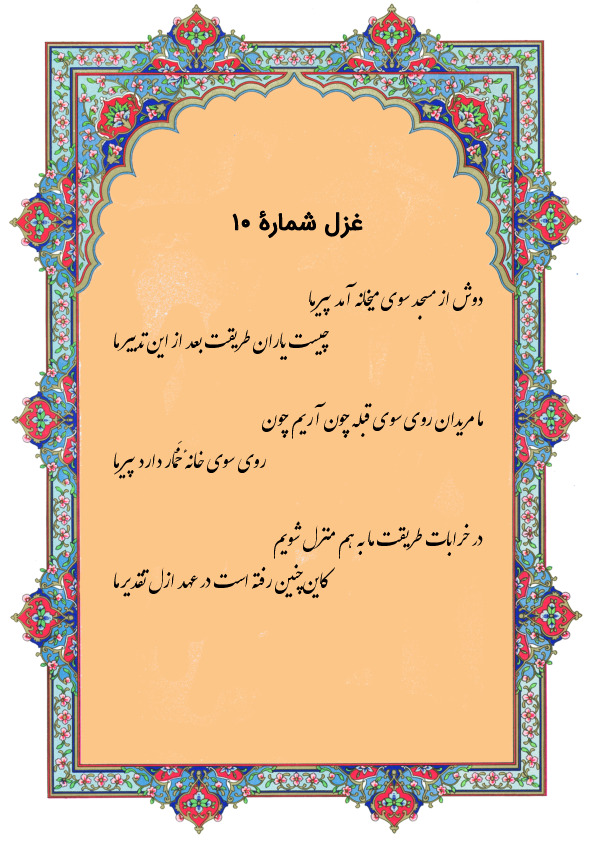 غزل شمارهٔ ۱۰
دوش از مسجد سوی میخانه آمد پیر ما
چیست یاران طریقت بعد از این تدبیر ما
ما مریدان روی سوی قبله چون آریم چون
روی سوی خانهٔ خَمّار دارد پیر ما
در خرابات طریقت ما به هم منزل شویم
کاین چنین رفته است در عهد ازل تقدیر ما